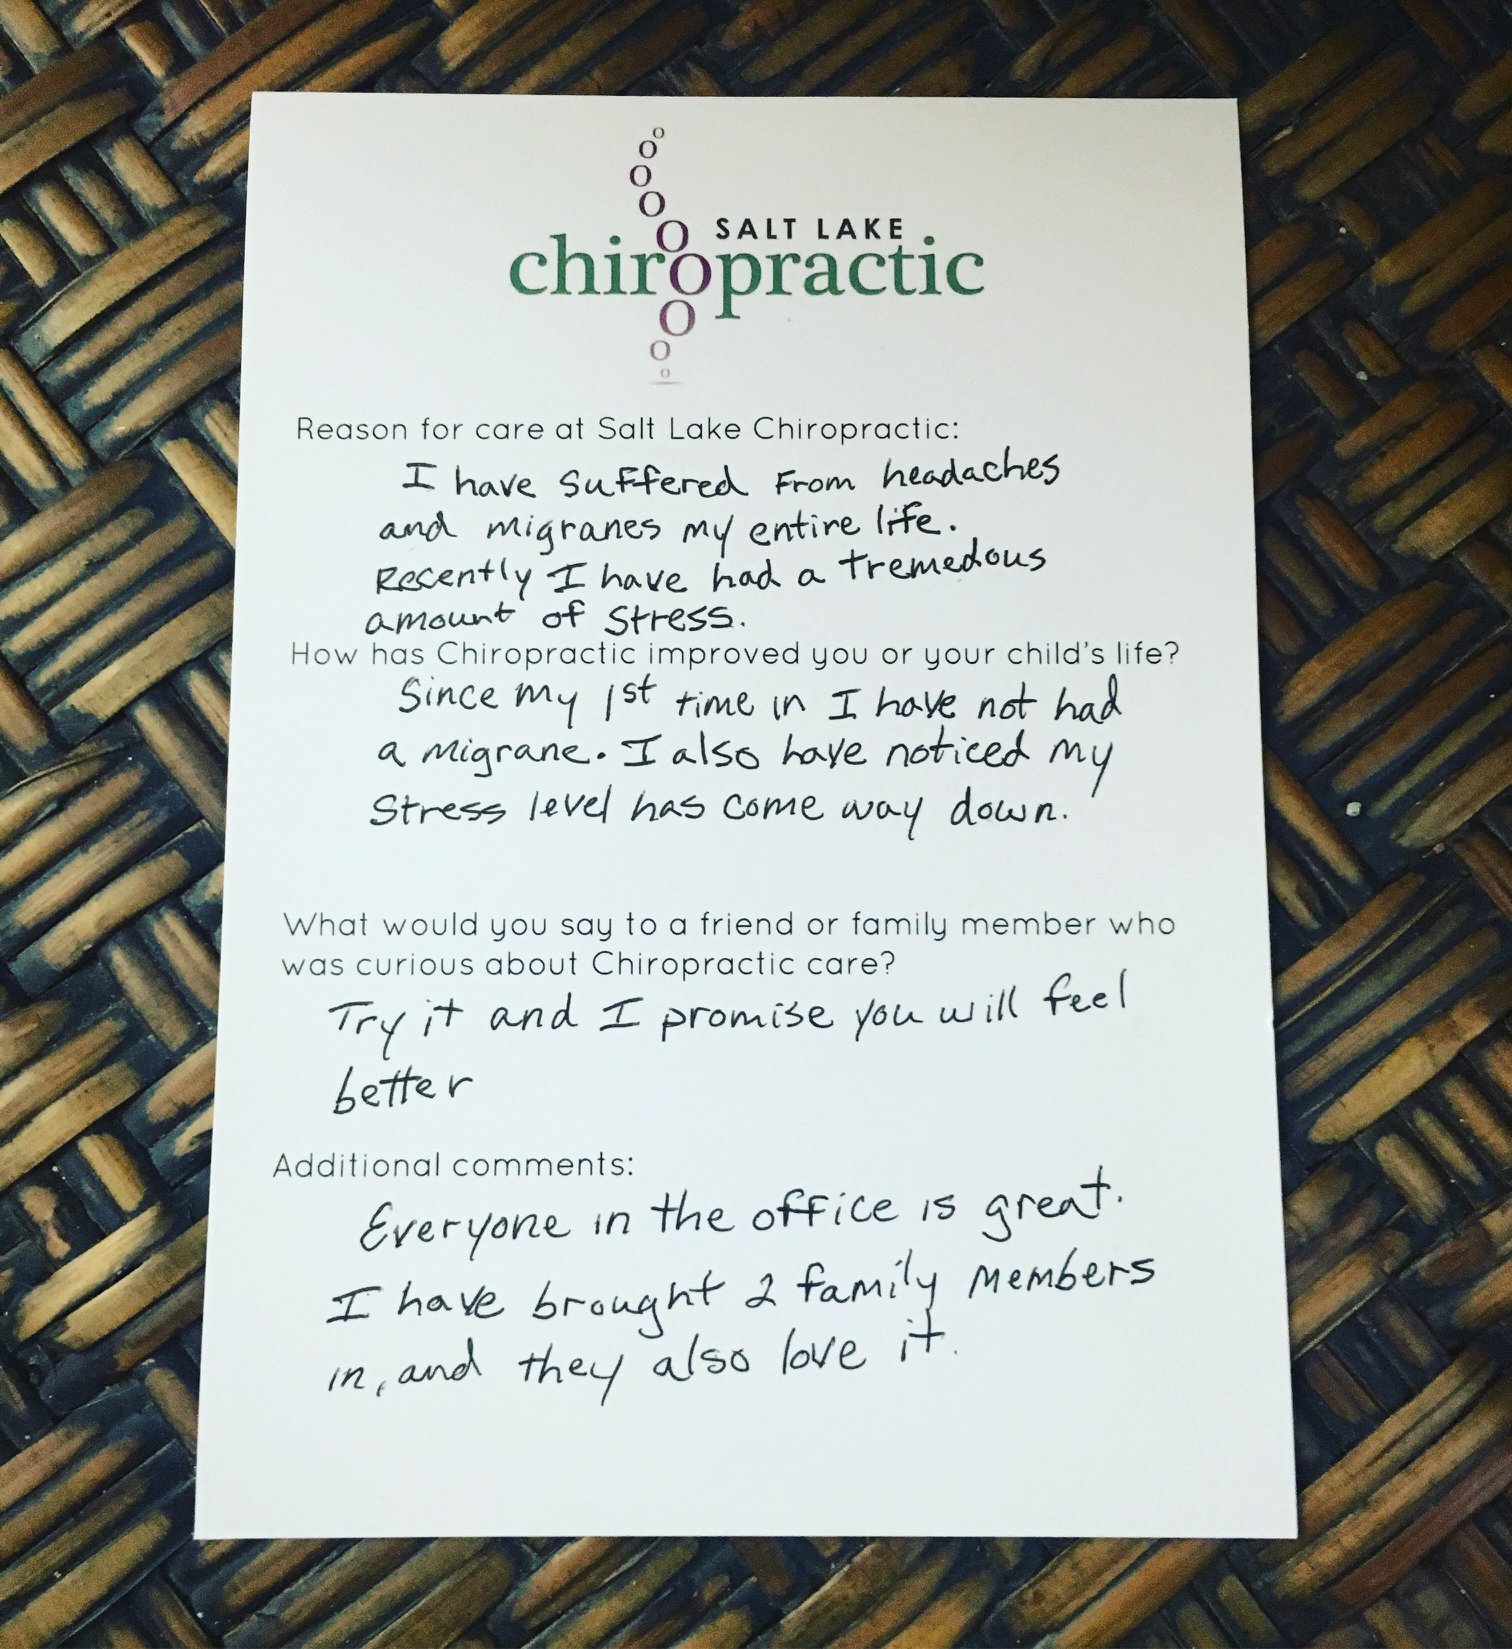 SALT LAKE
chiropractic
Reason for care at Salt Lake Chiropractic:
I have suffered from headaches
and migranes my entire life.
Recently I have had a tremedous
amount of stress.
How has Chiropractic improved you or your child's life?
Since my 1st time in I have not had
a migrane. I also have noticed my
stress level has come way down.
What would you say to a friend or family member who
was curious about Chiropractic care?
Try it and I promise you will feel
better
Additional comments:
Everyone in the office is great.
I have brought 2 family members
in, and they also love it.